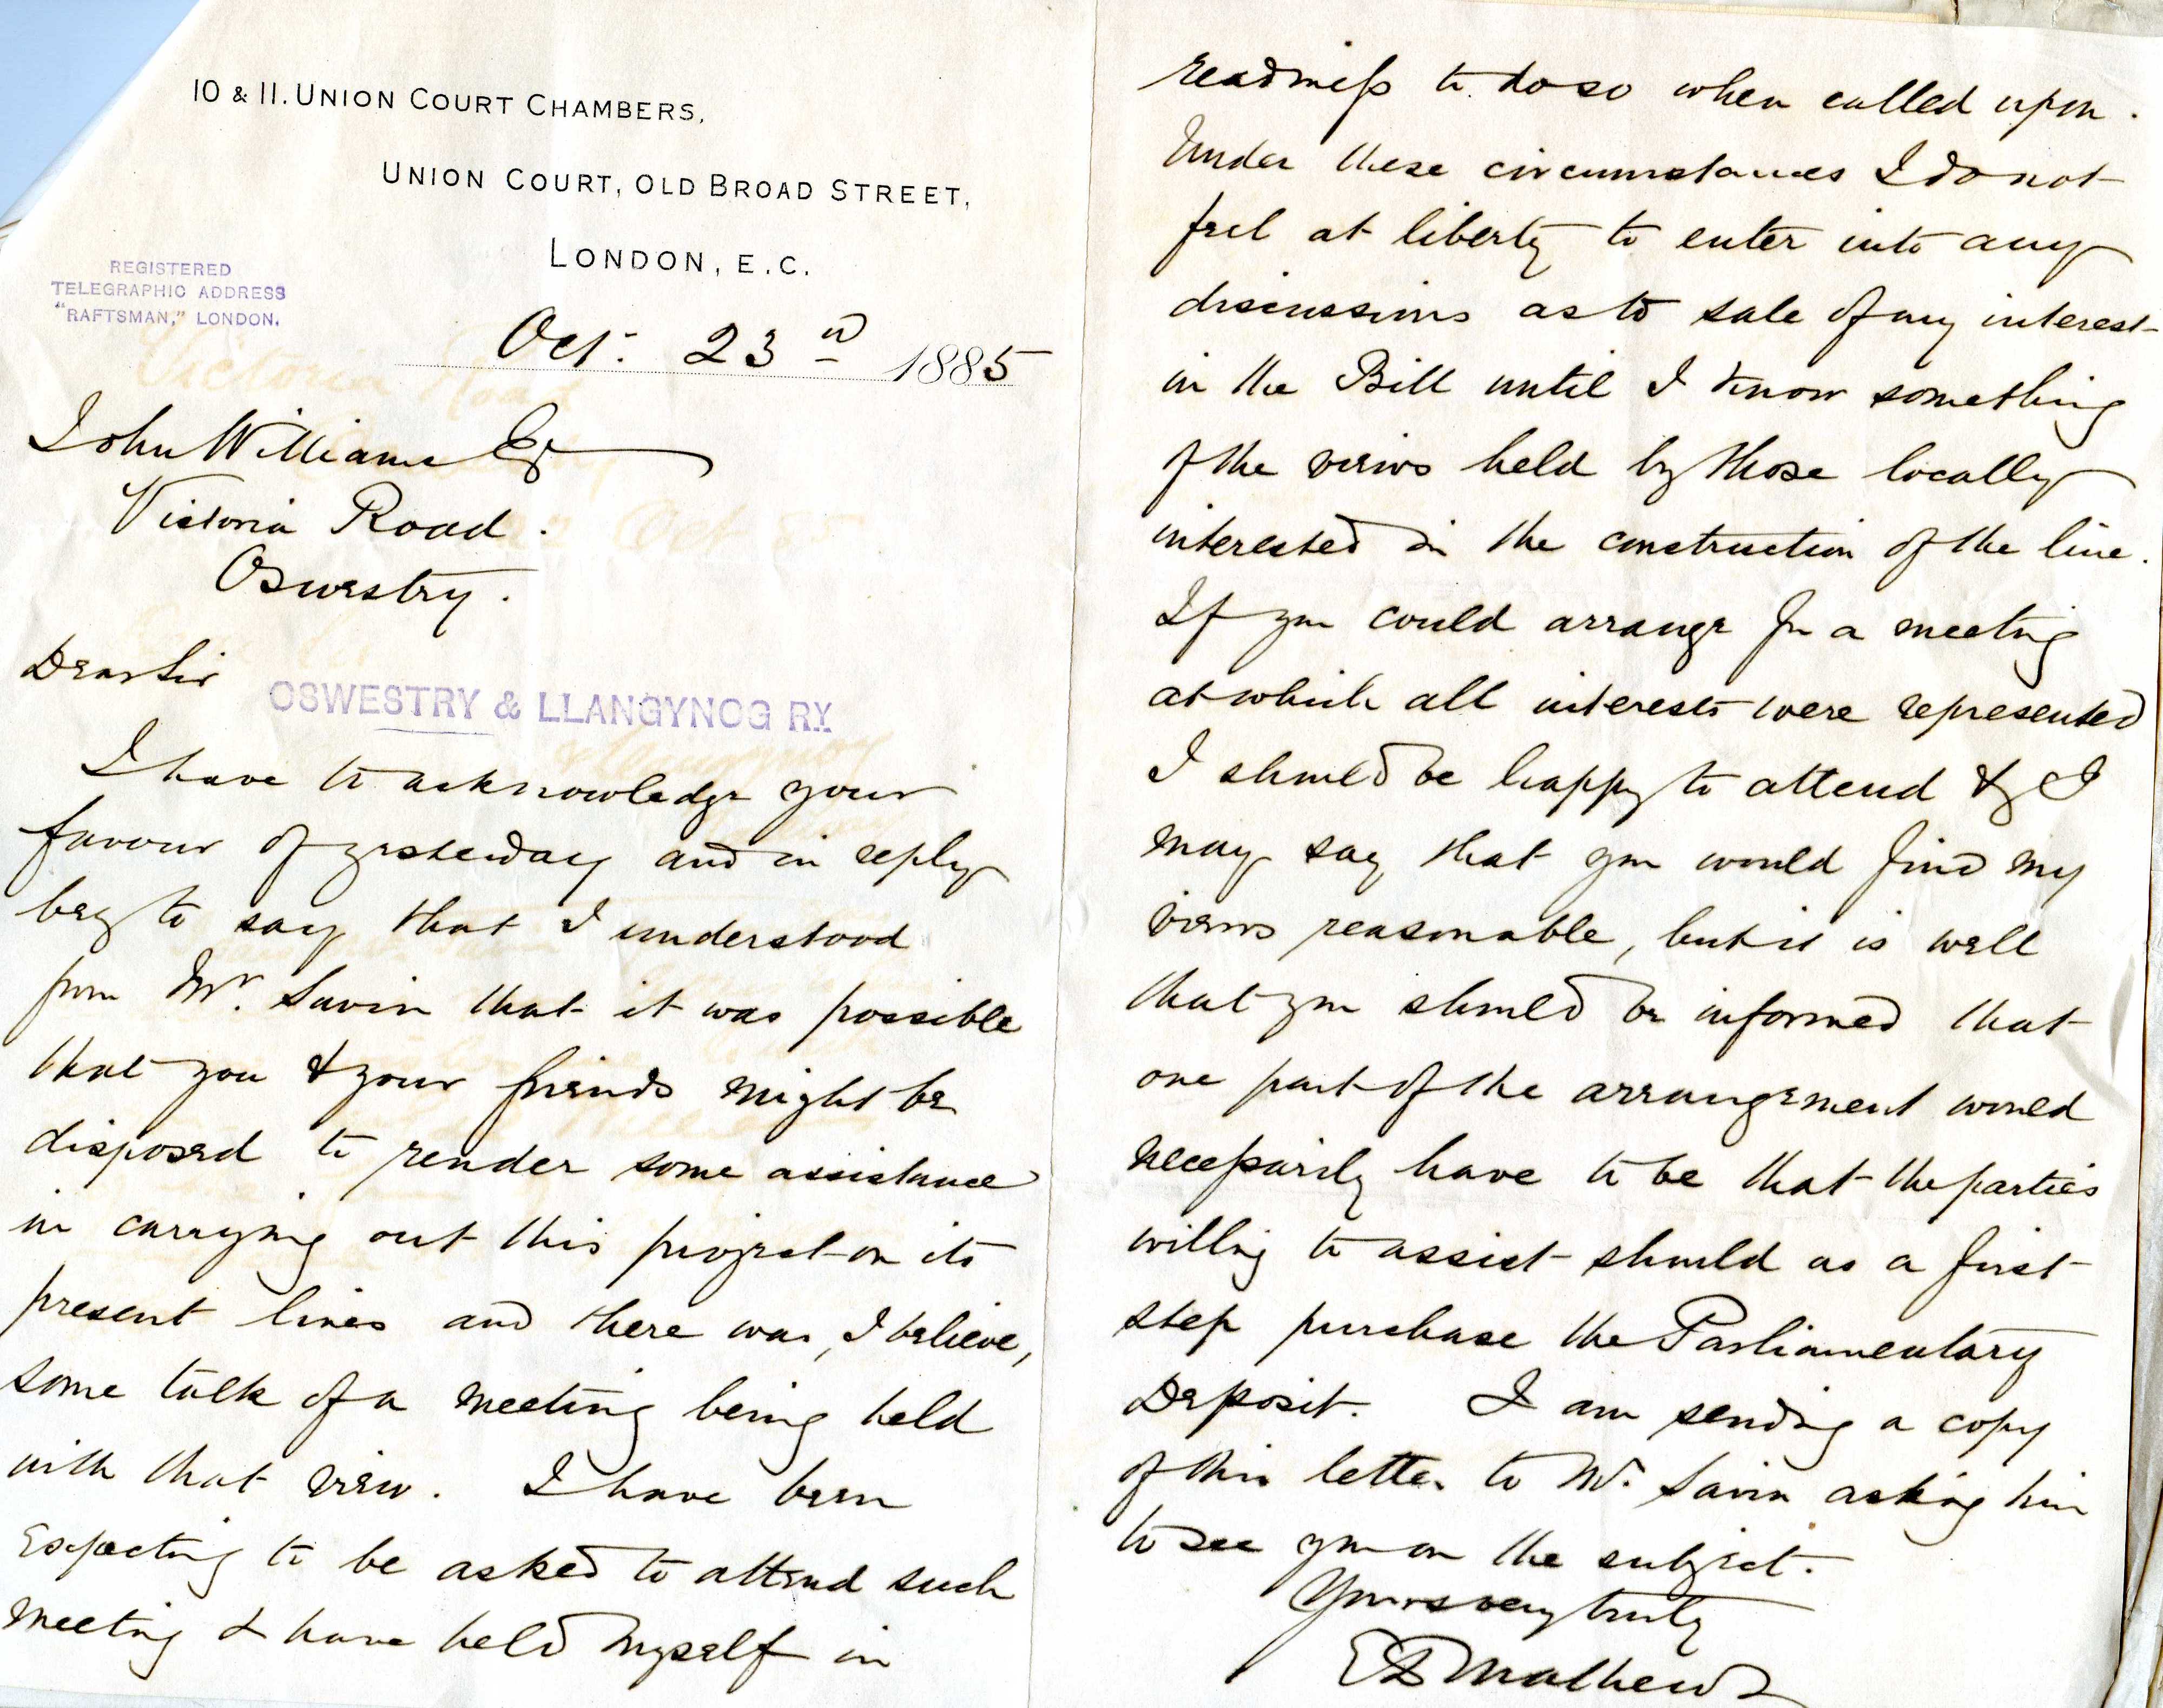 10 & 11. UNION COURT CHAMBERS,
UNION COURT, OLD BROAD STREET,
LONDON, E.C.
REGISTERED
TELEGRAPHIC ADDRESS
"RAFTSMAN," LONDON.
Oct. 23rd 1885
John Williams Esq
Victoria Road.
Oswestry.
Dear Sir
OSWESTRY & LLANGYNOG RY
I have to acknowledge your
favour of yesterday and in reply
beg to say that I understood
from Mr. Savin that it was possible
that you & your friends might be
disposed to render some assistance
in carrying out this project on its
present lines and there was, I believe,
some talk of a meeting being held
with that view. I have been
expecting to be asked to attend such
meeting & have held myself in
readiness to do so when called upon.
Under these circumstances I do not
feel at liberty to enter into any
discussions as to sale of my interest
in the Bill until I know something
of the views held by those locally
interested in the construction of the line.
If you could arrange for a meeting
at which all interests were represented
I should be happy to attend & I
may say that you would find my
views reasonable, but it is well
that you should be informed that
one part of the arrangement would
necessarily have to be that the parties
willing to assist should as a first
step purchase the Parliamentary
Deposit. I am sending a copy
of this letter to Mr. Savin asking him
to see you on the subject.
Yours very truly
Mathews